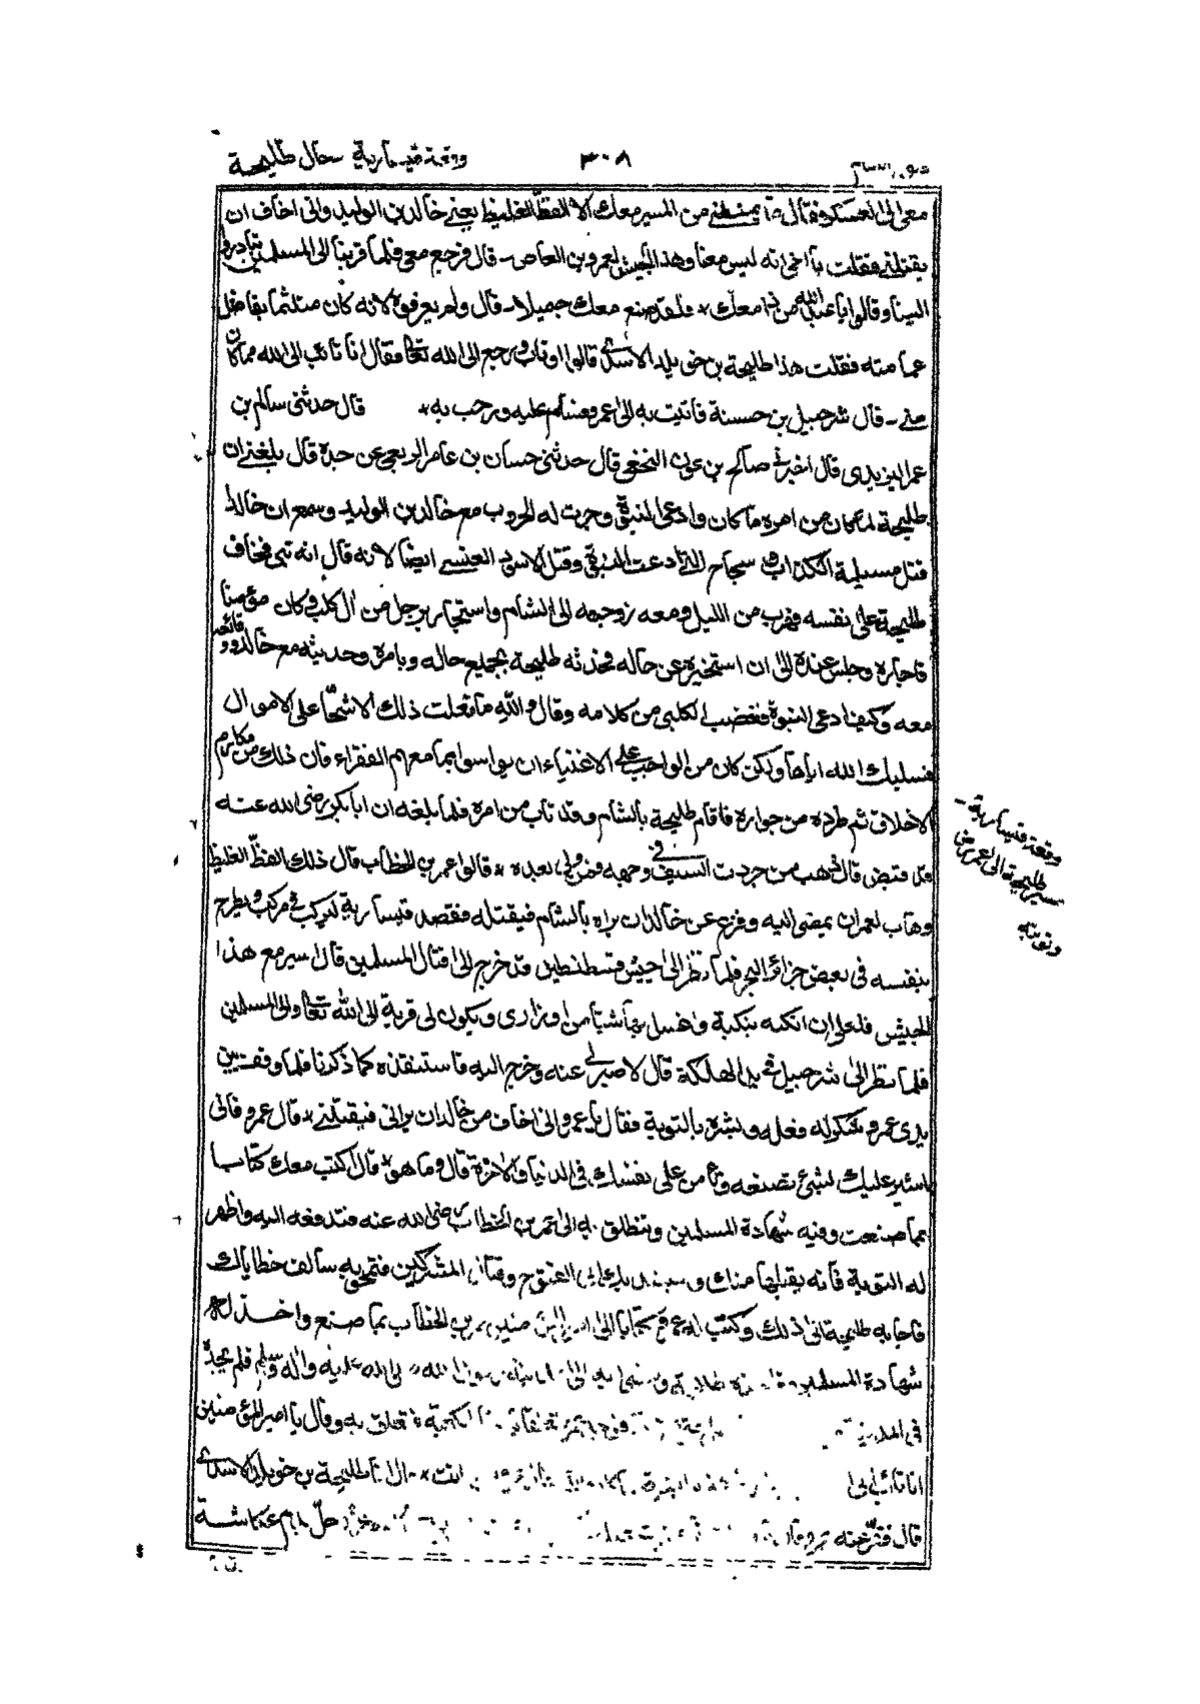 وقعة قيسارية سحال طليحة ٣٠٨ فتوح الشام
معى الى العسكر فقال ما يمنعنى من المسير معك الا الفظ الغليظ يعنى خالد بن الوليد وانى اخاف ان
يقتلنى فقلت يا اخى انه ليس معنا وهذا الجيش لعمرو بن العاص ـ قال فرجع معى فلما قربنا الى المسلمين تبادروا
الينا وقالوا يا عبد الله من ذا معك * فلقد صنع معك جميلا ـ قال ولم يعرفوه لانه كان متلثما بفاضل
عمامته فقلت هذا طليحة بن خويلد الاسدى قالوا او تاب ورجع الى الله تعالى فقال انا تائب الى الله مما كان
منى ـ قال شرحبيل بن حسنة فاتيت به الى عمرو فسلم عليه ورحب به * قال حدثنى سالم بن
عمر اليزيدى قال اخبرنى صالح بن عون النخعى قال حدثنى حسان بن عامر الربعى عن جده قال بلغنى ان
طليحة لما كان من امره ما كان وادعى النبوة وجرت له الحروب مع خالد بن الوليد وسمع ان خالدا
قتل مسيلمة الكذاب و سجاح التى ادعت النبوة وقتل الاسود العنسى ايضا لانه قال انه نبى فخاف
طليحة على نفسه فهرب من الليل ومعه زوجته الى الشام واستجار برجل من ال كلب وكان مؤمنا
فاجاره وجلس عنده الى ان استخبره عن حاله فحدثه طليحة بجميع حاله وبامره وحديثه مع خالد ووقائعه
معه وكيف ادعى النبوة فغضب الكلبى من كلامه وقال والله ما فعلت ذلك الا شحا على الاموال
فسلبك الله اياها ولكن كان من الواجب على الاغنياء ان يواسوا بما معهم الفقراء فان ذلك من مكارم
الاخلاق ثم طرده من جواره فاقام طليحة بالشام وقد تاب من امره فلما بلغه ان ابا بكر رضى الله عنه
قد قبض قال ذهب من جردت السيف فى وجهه فمن ولى بعده * قالوا عمر بن الخطاب قال ذلك الفظ الغليظ
وهاب لعمر ان يمضى اليه وفزع عن خالد ان يراه بالشام فيقتله فقصد قيسارية ليركب فى مركب ويطرح
بنفسه فى بعض جزائر البحر فلما نظر الى جيش قسطنطين قد خرج الى قتال المسلمين قال اسير مع هذا
الجيش فلعلى ان انكبه بنكبة واغسل بها شيئا من اوزارى ويكون لى قربة الى الله تعالى والى المسلمين
فلما نظر الى شرحبيل فى يد الهلكة قال لا صبر لى عنه وخرج اليه فاستنقذه كما ذكرنا فلما وقف بين
يدى عمرو شكر له فعله وبشره بالتوبة فقال يا عمرو انى اخاف من خالد ان يرانى فيقتلنى * قال عمرو فانى
اشير عليك بشئ تصنعه وتامن على نفسك فى الدنيا والاخرة قال وما هو * قال اكتب معك كتابا
بما صنعت وفيه شهادة المسلمين وتنطلق به الى عمر بن الخطاب رضى الله عنه فتدفعه اليه واظهر
له التوبة فانه يقبلها منك و على الفتوح وقتال المشركين فتمحو به سالف خطاياك
فاجابه طليحة الى ذلك وكتب له عمرو كتابا الى امير المؤمنين عمر بن الخطاب بما صنع واخذ له
شهادة المسلمين الى مدينة رسول الله صلى الله عليه واله وسلم فلم يجده
فى المدينة الكعبة فتعلق به وقال يا امير المؤمنين
انا تائب الى انت * قال انا طليحة بن خويلد الاسدى
قال فنفر عنه دم عكاشة
وقعة قيسارية ـ
مسير طليحة الى عمر رض
وتوبته